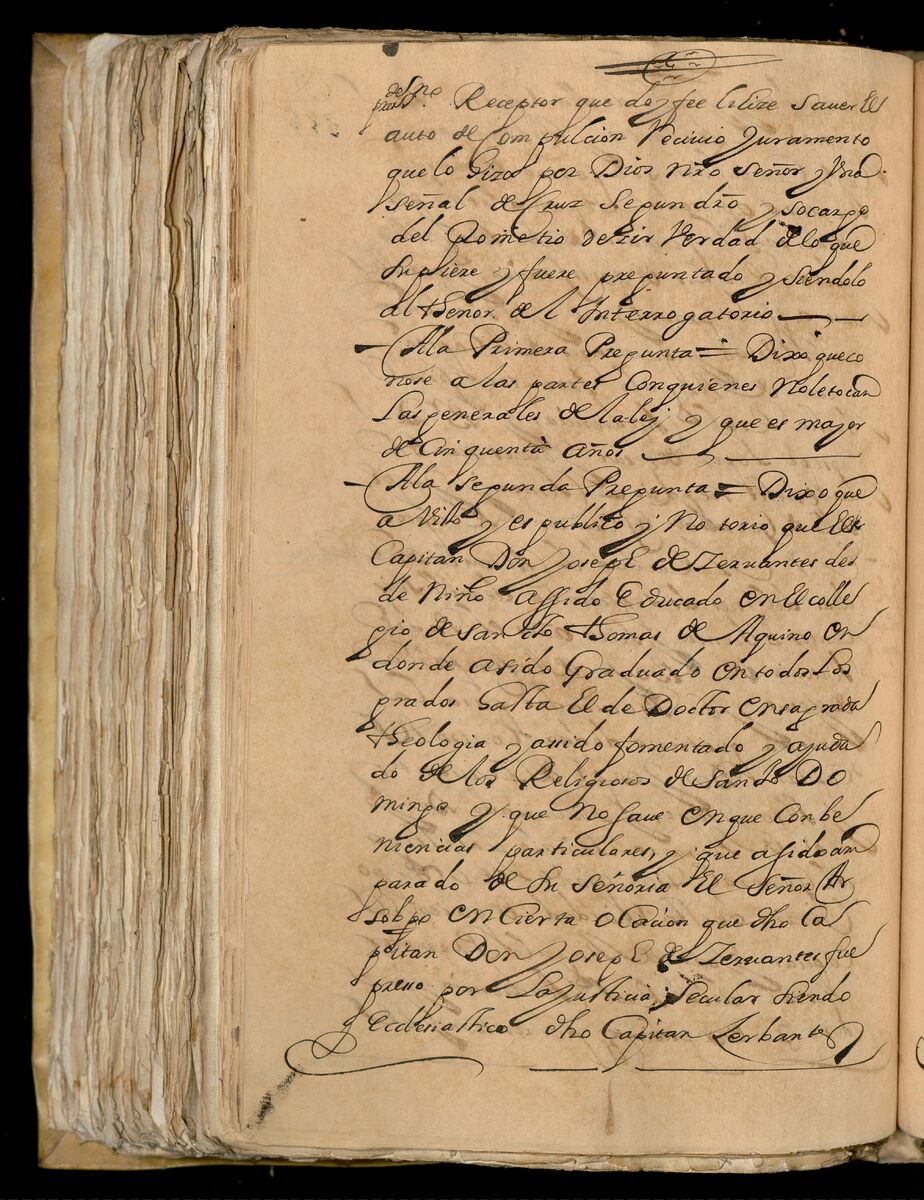 Receptor que doy fee le ize saver El
auto de Compulcion Recivio Juramento
que lo hizo por Dios nrõ Señor y Una
señal de Cruz segun drõ y socargo
del Prometio dezir Verdad de lo que
supiere y fuere preguntado y siendolo
al thenor del Interrogatorio
Ala Primera Pregunta = Dixo que co
nose a las partes Conquienes No le tocan
Las generales de la ley y que es mayor
de Cinquenta años
Ala segunda Pregunta = Dixo que
a Visto y es publico y Notorio que El
Capitan Don Joseph de Zervantes des
de Niño assido Educado en El colle
gio de sancto thomas de Aquino en
donde a sido Graduado en todos Los
grados hasta El de Doctor en sagrada
theologia y assido fomentado y ajuda
do de los Religiosos de Santo Do
mingo y que No save en que Conbe
niencias particulares, y que a sido am
parado de su señoria El señor Ar
sobpo en Cierta ocacion que dho Ca
pitan Don Joseph de Zervantes fue
presso por La Justicia Secular siendo
Ecclesiastico dho Capitan Zerbantes